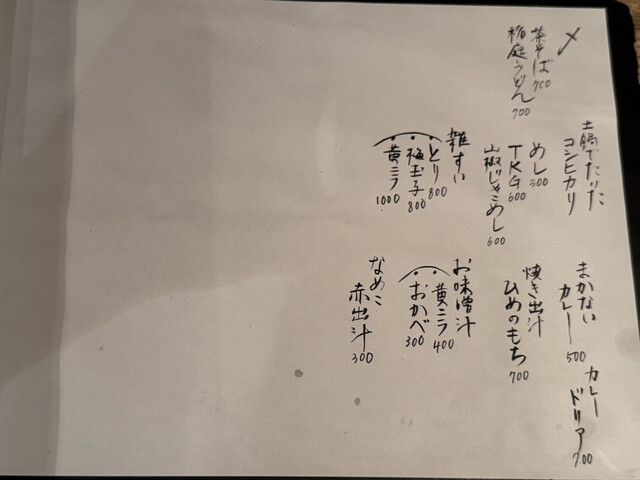 〆
茶そば 700
稲庭うどん 700
土鍋でたいた
コシヒカリ
めし 300
TKG 600
山椒じゃこめし 600
雑すい
・とり 800
・梅玉子 800
・黄ニラ 1000
まかない
カレー 500
カレー
ドリア 700
焼き出汁
ひめのもち 700
お味噌汁
・黄ニラ 400
・おかべ 300
なめこ
赤出汁 300